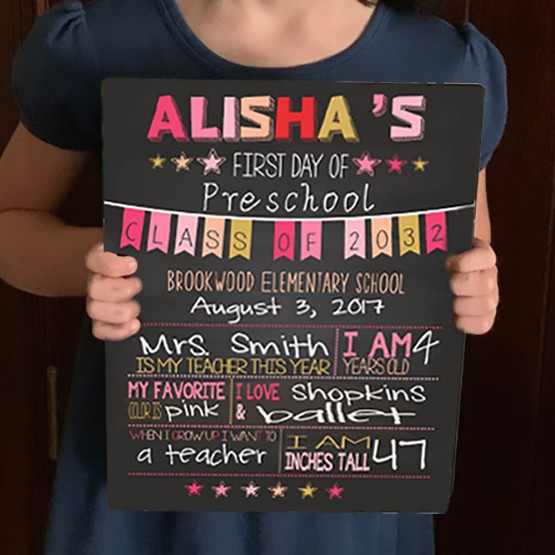 ALISHA'S
FIRST DAY OF
Preschool
CLASS OF 2032
BROOKWOOD ELEMENTARY SCHOOL
August 3, 2017
Mrs. Smith
IS MY TEACHER THIS YEAR
I AM 4
YEARS OLD
MY FAVORITE
COLOR IS pink
I LOVE shopkins
& ballet
WHEN I GROW UP I WANT TO
a teacher
I AM
INCHES TALL 47